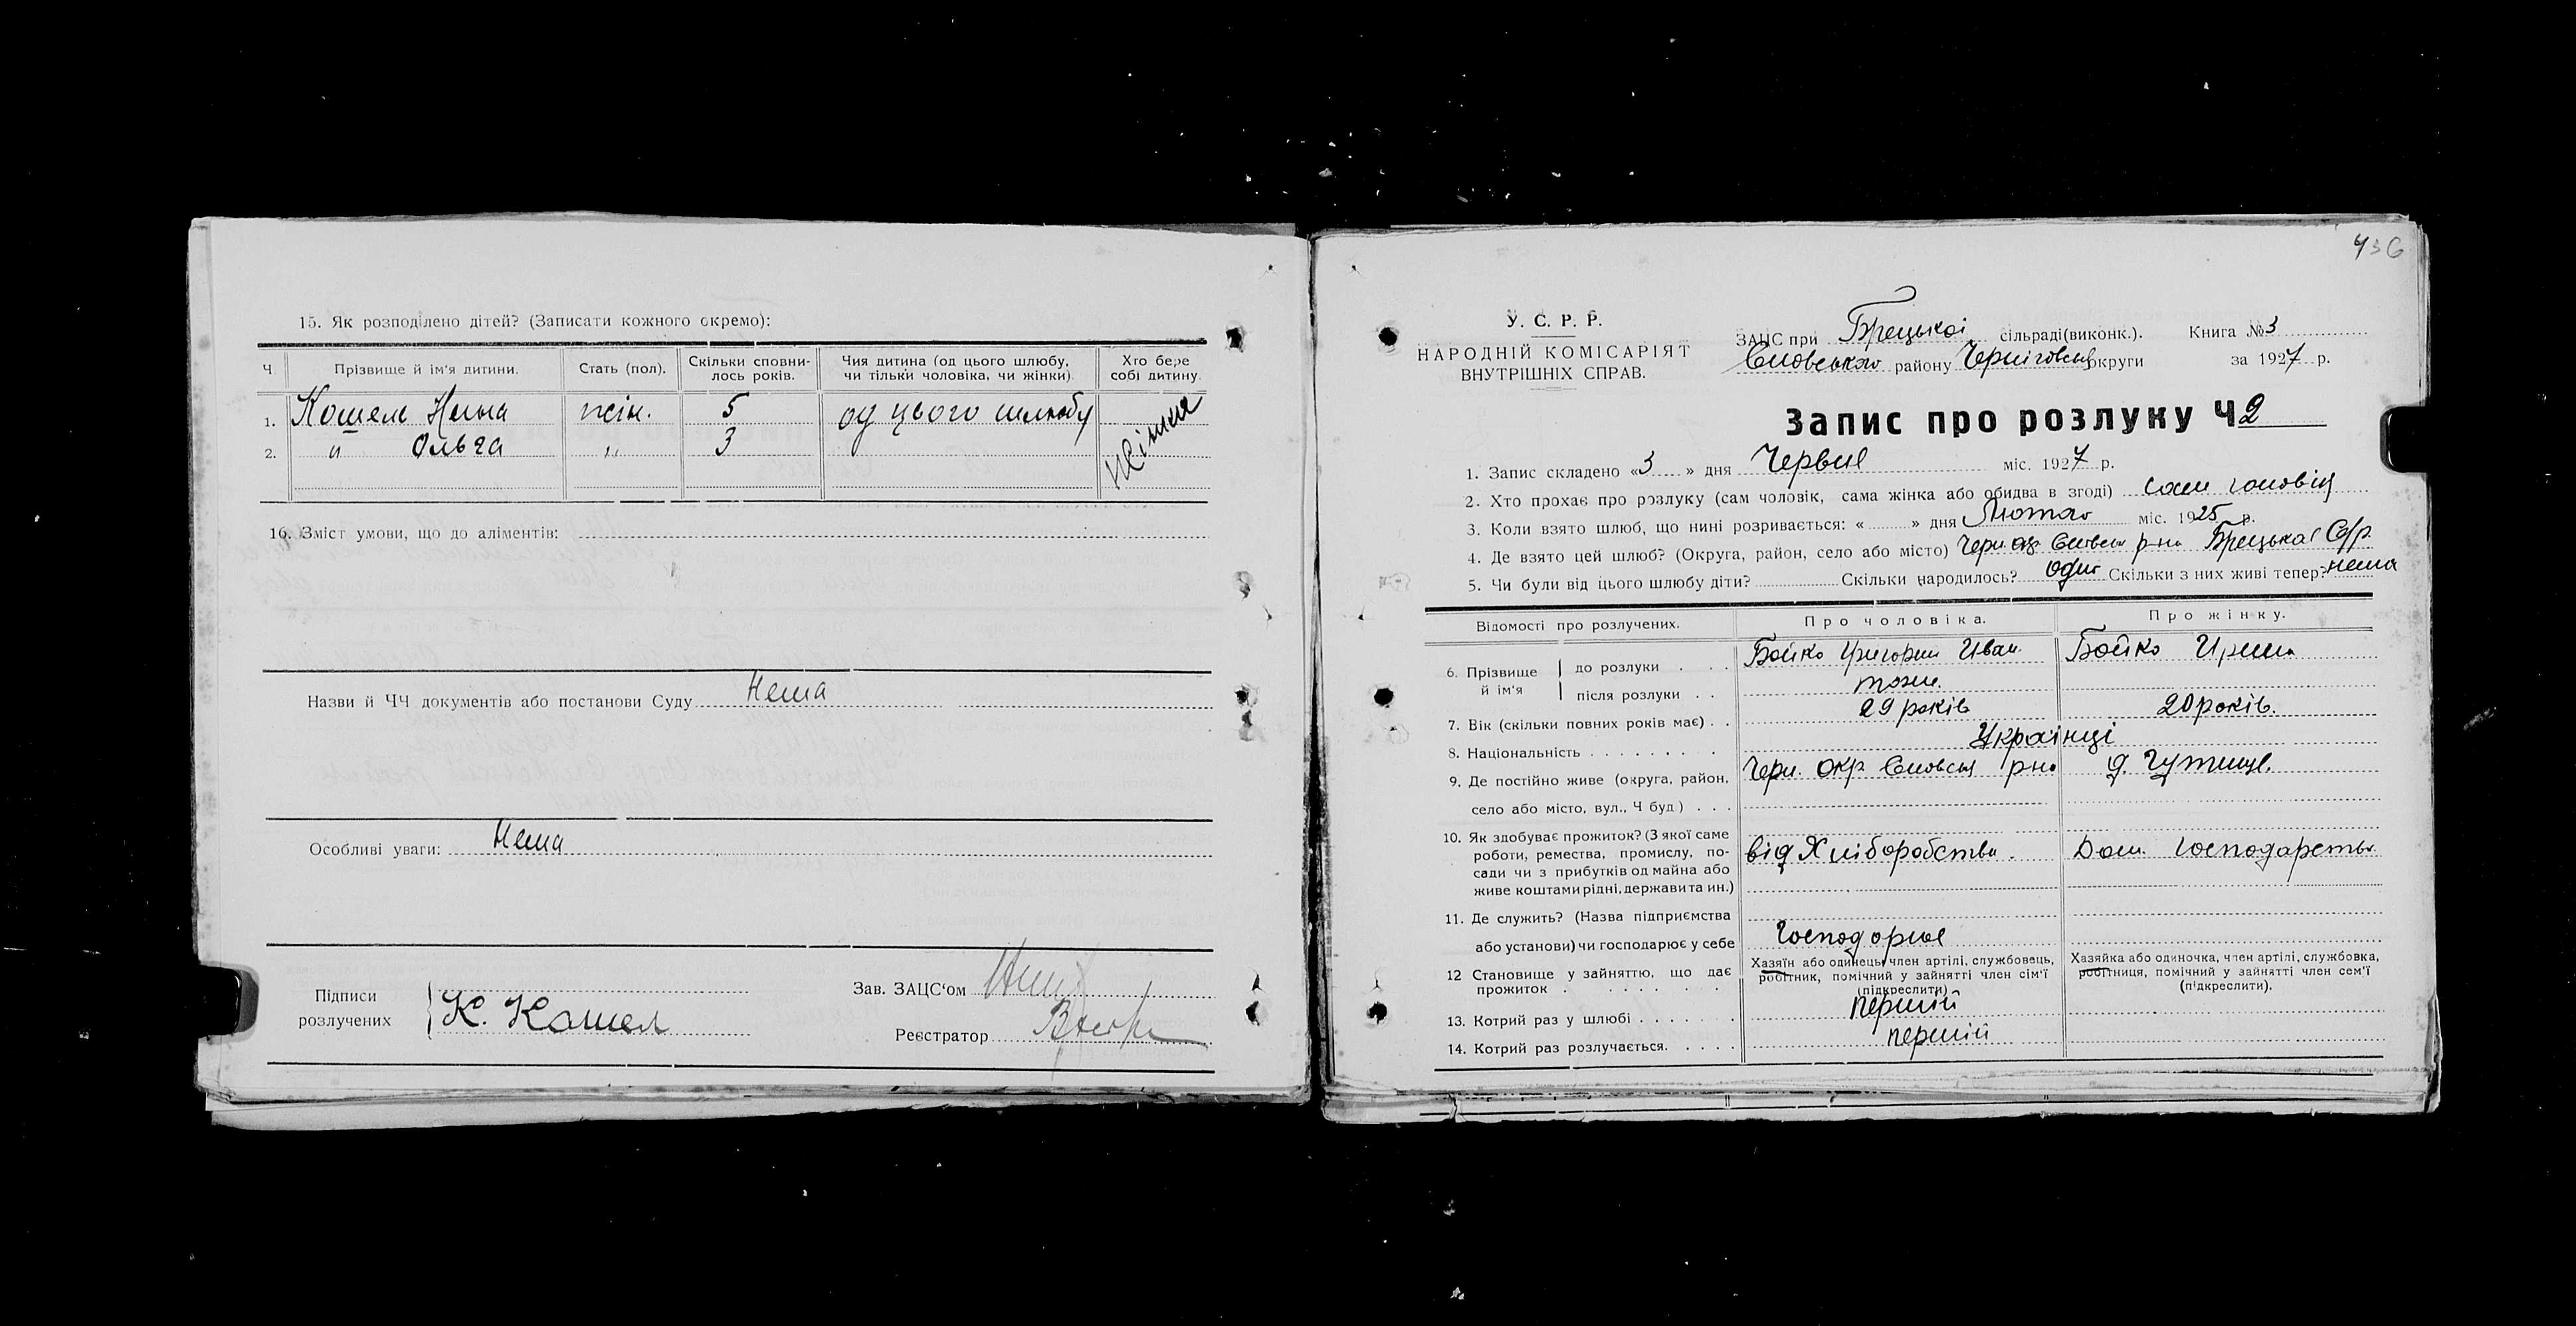 15. Як розподілено дітей? (Записати кожного окремо):
Ч. Прізвище й ім'я дитини. Стать (пол). Скільки сповнилось років. Чия дитина (од цього шлюбу, чи тільки чоловіка, чи жінки) Хто бере собі дитину.
1. Кошель Нина жін. 5 од цього шлюбу жінка
2. " Ольга " 3
16. Зміст умови, що до аліментів:
Назви й ЧЧ документів або постанови Суду Нема
Особливі уваги: Нема
Підписи розлучених К. Кошел
Зав. ЗАЦС'ом
Реєстратор
436
У. С. Р. Р.
НАРОДНІЙ КОМІСАРІЯТ
ВНУТРІШНІХ СПРАВ.
ЗАЦС при Брецької сільраді(виконк.). Книга № 3
Сновського району Черніговськ округи за 1927 р.
Запис про розлуку Ч 2
1. Запис складено «3» дня Червня міс. 1927 р.
2. Хто прохає про розлуку (сам чоловік, сама жінка або обидва в згоді) сам чоловік
3. Коли взято шлюб, що нині розривається: « » дня Лютого міс. 1925 р.
4. Де взято цей шлюб? (Округа, район, село або місто) Черн. окр Сновськ р-на Брецька С/р.
5. Чи були від цього шлюбу діти? Скільки народилось? один Скільки з них живі тепер? нема
Відомості про розлучених. Про чоловіка. Про жінку.
6. Прізвище й ім'я до розлуки Бойко Григорий Иван. Бойко Ирина
після розлуки тоже.
7. Вік (скільки повних років має) 29 років 20 років.
8. Національність Українці
9. Де постійно живе (округа, район, Черн. окр Сновськ р-на д. Гутище.
село або місто, вул., Ч буд.)
10. Як здобуває прожиток? (З якої саме
роботи, ремества, промислу, по- від Хліборобства. Дом. Господарства
сади чи з прибутків од майна або
живе коштами рідні, держави та ин.)
11. Де служить? (Назва підприємства
або установи) чи господарює у себе Господорює
12 Становище у зайняттю, що дає прожиток Хазяїн або одинець, член артілі, службовець, робітник, помічний у зайнятті член сім'ї (підкреслити) Хазяйка або одиночка, член артілі, службовка, робітниця, помічний у зайнятті член сем'ї (підкреслити).
13. Котрий раз у шлюбі першій
14. Котрий раз розлучається. першій